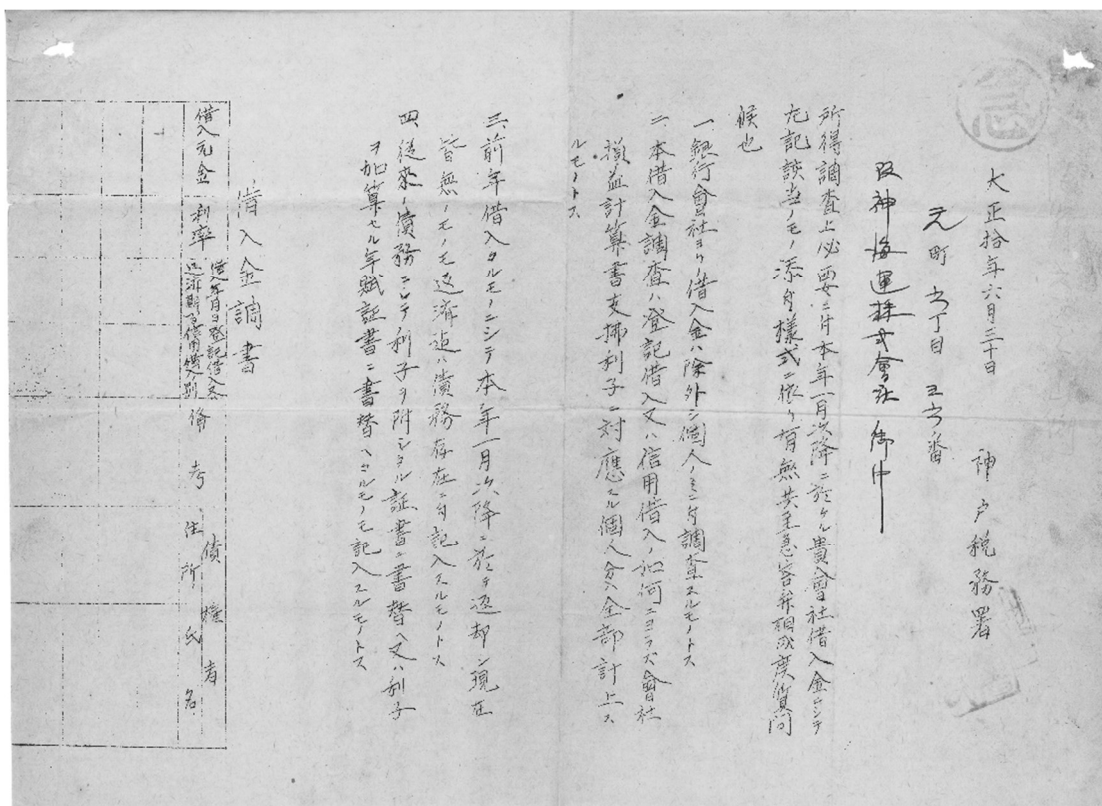 急
大正拾年六月三十日
神戸税務署
元町六丁目五六番
阪神海運株式會社御中
所得調査上必要ニ付本年一月次降ニ於ケル貴會社借入金ニシテ
左記該当ノモノ添付様式ニ依リ有無共至急 相成度質問
候也
一、銀行會社ヨリノ借入金ハ除外シ個人ノミニ付調査スルモノトス
二、本借入金調査ハ登記借入又ハ信用借入ノ如何ニヨラズ會社
損益計算書支拂利子ニ対應スル個人分ハ全部計上ス
ルモノトス
三、前年借入タルモノニシテ本年一月次降ニ於テ返却シ現在
皆無ノモノモ返済迄ハ債務存在ニ付記入スルモノトス
四、従来ノ債務ニシテ利子ヲ附シタル証書ニ書替ヘ又ハ利子
ヲ加算セル年賦証書ニ書替ヘタルモノモ記入スルモノトス
借入金調書
借入元金
利率
借入年月日登記借入又
返済期日信用借入別
備考
債権者
住所氏名